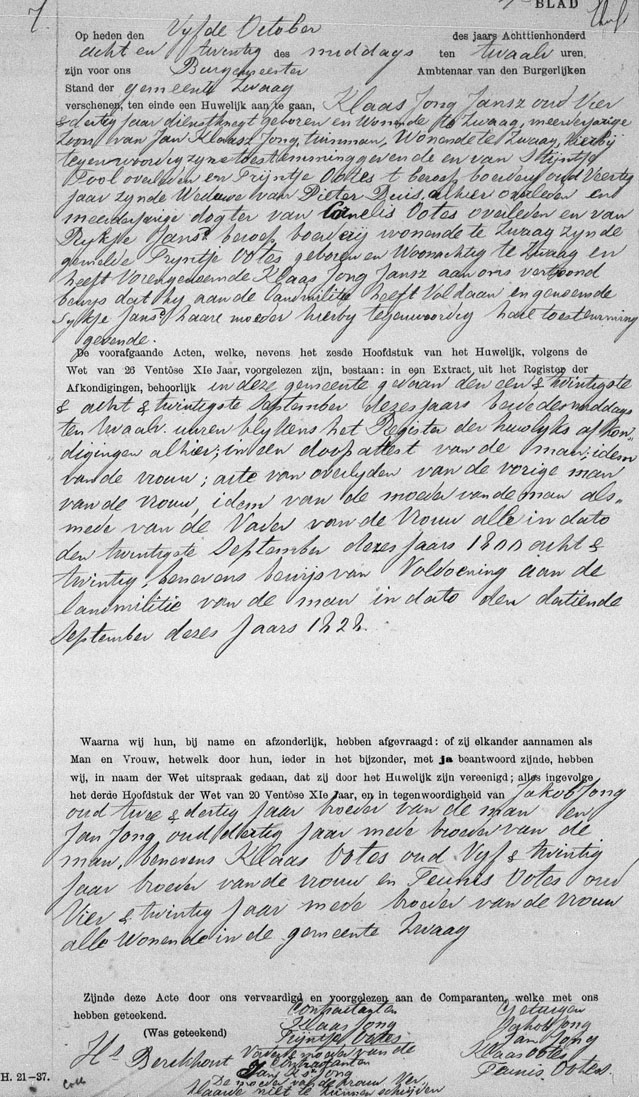 7.
BLAD
Op heden den Vyfde October des jaars Achttienhonderd
acht en twintig des middags ten twaalf uren,
zijn voor ons Burgemeester Ambtenaar van den Burgerlijken
Stand der gemeente Zwaag
verschenen, ten einde een Huwelijk aan te gaan, Klaas Jong Jansz oud Vier
& dertig Jaar dienstknegt geboren en Wonende te Zwaag, meerderjarige
Zoon van Jan Klaasz Jong, tuinman, Wonende te Zwaag, hierby
tegenwoordig zyne toestemming gevende en van Stijntje
Pool overleden en Trijntje Ootes beroep boerery oud Veertig
jaar zynde Weduwe van Pieter Buis, alhier overleden en
meerderjarige dogter van Cornelis Ootes overleden en van
Jansd beroep boerery wonende te Zwaag zynde
gemelde Tryntje Ootes geboren en Woonachtig te Zwaag en
heeft Vorengenoemde Klaas Jong Jansz aan ons vertoond
bewys dat hy aan de landmilitie heeft Voldaan en genoemde
Jansd haare moeder hierby tegenwoordig hare toestemming
gevende.
De voorafgaande Acten, welke, nevens het zesde Hoofdstuk van het Huwelijk, volgens de
Wet van 26 Ventôse XIe Jaar, voorgelezen zijn, bestaan: in een Extract, uit het Register der
Afkondigingen, behoorlijk in deze gemeente gedaan den een & twintigste
& acht & twintigste September dezes jaars beide des middags
ten twaalf uuren blykens het Register der huwlyks afkon„
digingen alhier; in een doop attest van de man; idem
van de vrouw; acte van overlyden van de vorige man
van de Vrouw, idem van de moeder van de man als„
mede van de Vader van de Vrouw alle in dato
den twintigste September dezes Jaars 1800 acht &
twintig, benevens bewijs van Voldoening aan de
landmilitie van de man in dato den dertiende
September dezes Jaars 1828.
Waarna wij hun, bij name en afzonderlijk, hebben afgevraagd: of zij elkander aannamen als
Man en Vrouw, hetwelk door hun, ieder in het bijzonder, met ja beantwoord zijnde, hebben
wij, in naam der Wet uitspraak gedaan, dat zij door het Huwelijk zijn vereenigd; alles ingevolge
het derde Hoofdstuk der Wet van 20 Ventôse XIe Jaar, en in tegenwoordigheid van Jakob Jong
oud twee & dertig Jaar broeder van de man en
Jan Jong, oud dertig Jaar mede broeder van de
man, benevens Klaas Ootes oud Vyf & twintig
Jaar broeder van de vrouw en Teunis Ootes oud
Vier & twintig Jaar mede broeder van de Vrouw
alle Wonende in de gemeente Zwaag
Zijnde deze Acte door ons vervaardigd en voorgelezen aan de Comparanten, welke met ons
hebben geteekend.
(Was geteekend)
Contractanten
Klaas Jong
Trijntje Ootes
Getuigen
Jakob Jong
Jan Jong
Klaas Ootes
Teunis Ootes.
Hs Berckhout
van de
Contractanten
Jan Ksz Jong
De moeder van de vrouw ver„
klaarde niet te kunnen schrijven
H. 21-37.